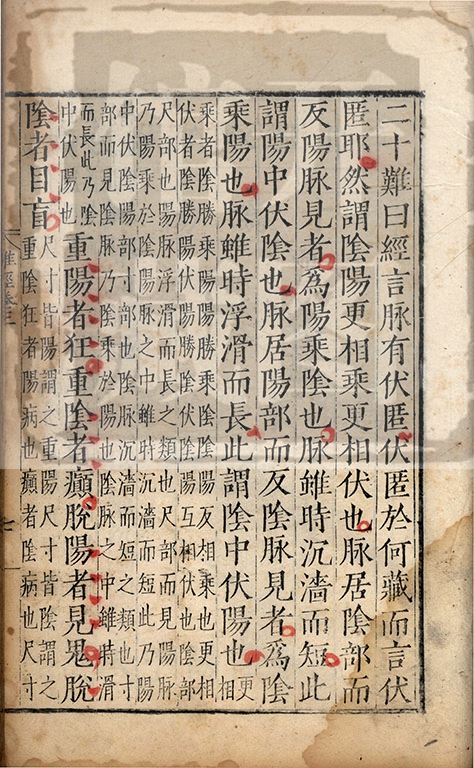 二十難曰經言脉有伏匿伏匿於何藏而言伏
匿耶然謂陰陽更相乘更相伏也脉居陰部而
反陽脉見者為陽乘陰也脉雖時沉濇而短此
謂陽中伏陰也脉居陽部而反陰脉見者為陰
乘陽也脉雖時浮滑而長此謂陰中伏陽也更相
乘者陰勝陽陽勝乘陰陽反相乘也更相
伏者陰伏陽陽伏陰陽互相伏也陰部
尺部也陽脉浮滑而長之類也尺部而見陽脉
乃陽乘於陰陽脉之中雖時沉濇而短此乃陽
中伏陰陽部寸部也陰脉沉濇而短之類也寸
部而見陰脉乃陰乘於陽也陰脉之中雖時滑
而長此乃陰中伏陽也重陽者狂重陰者癲脫陽者見鬼脫
陰者目盲尺寸皆陽謂之重陽尺寸皆陰謂之
重陰狂者陽病也癲者陰病也尺寸